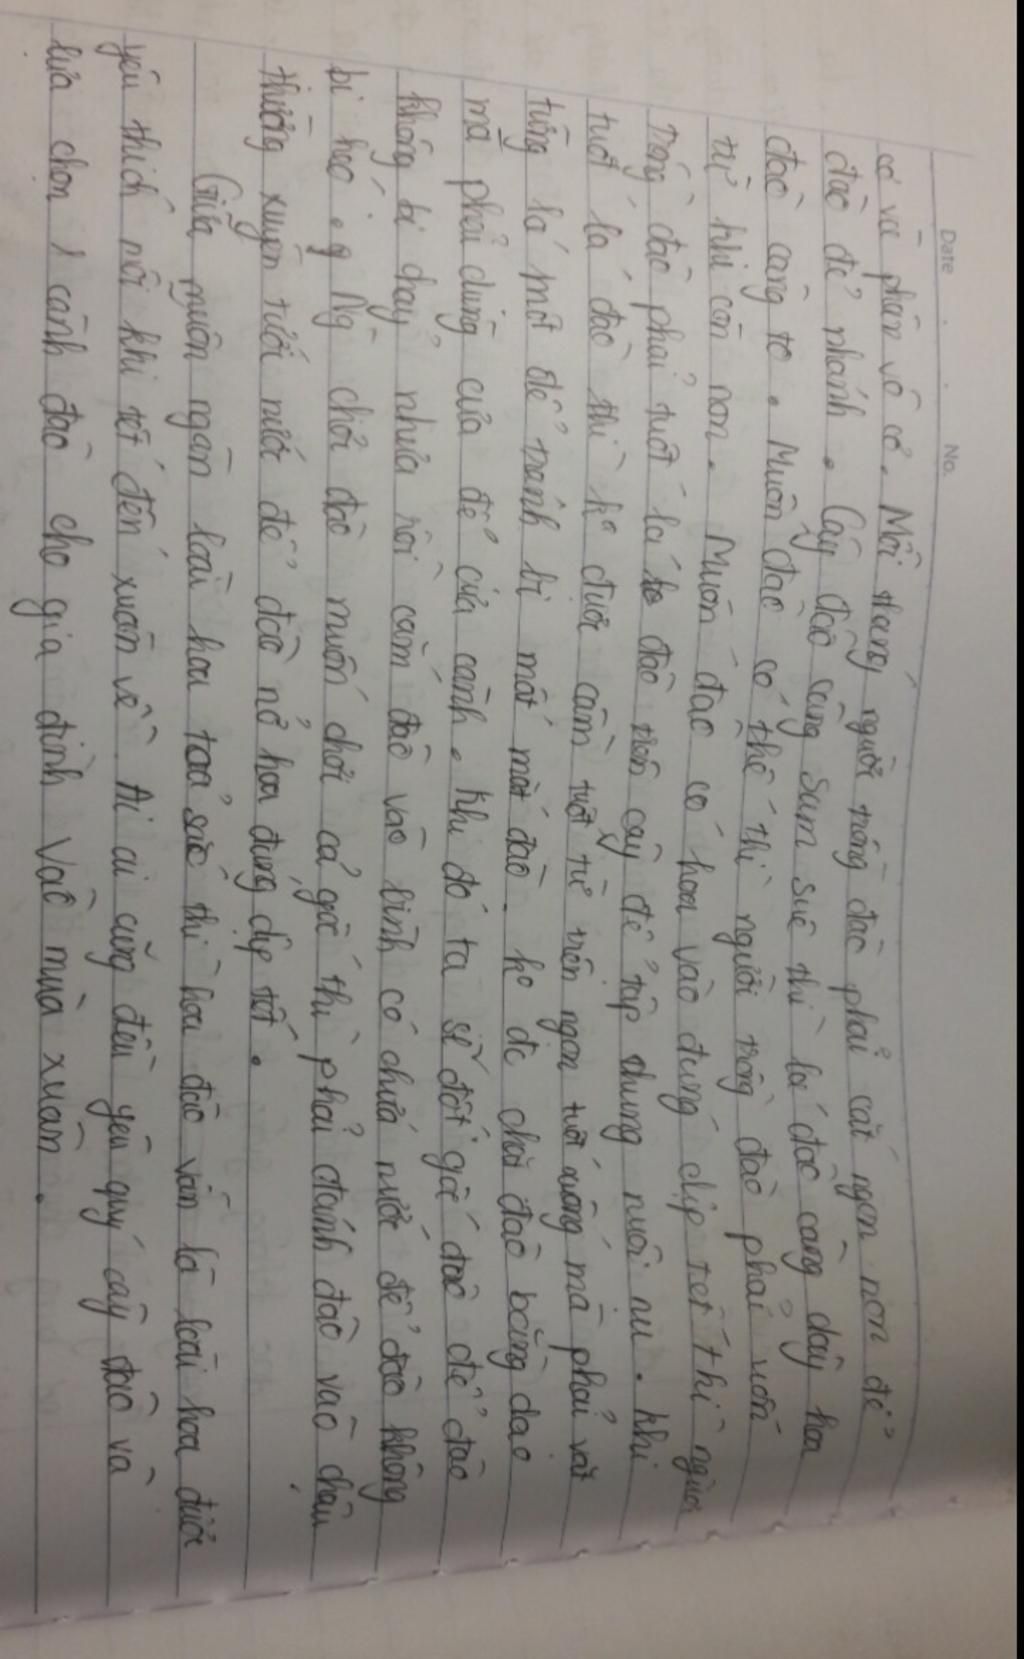 Date No.
cơ và phân vô cơ. Mỗi tháng người trồng đào phải cắt ngọn non để
đào đẻ nhánh. Cây đào càng sum suê thì lá đào càng dày hoa
đào càng to. Muốn đào có thế thì người trồng đào phải uốn
từ khi còn non. Muốn đào có hoa vào đúng dịp tết thì người
trồng đào phải tuốt lá đào trên cây để tập chung nuôi nụ. khi
tuốt lá đào thì ko được cầm tuốt từ trên ngọn tuốt xuống mà phải vặt
từng lá một để tránh bị mất mắt đào. ko đc chặt đào bằng dao
mà phải dùng cưa để cưa cành. khi đó ta sẽ đốt gốc đào để đào
không bị chảy nhựa rồi cắm đào vào bình có chứa nước để đào không
bị héo. Ng chơi đào muốn chơi cả gốc thì phải đánh đào vào chậu
thường xuyên tưới nước để đào nở hoa đúng dịp tết.
Giữa muôn ngàn loài hoa toả sắc thì hoa đào vẫn là loài hoa được
yêu thích mỗi khi tết đến xuân về. Ai ai cũng đều yêu quý cây đào và
lựa chọn 1 cành đào cho gia đình vào mùa xuân.